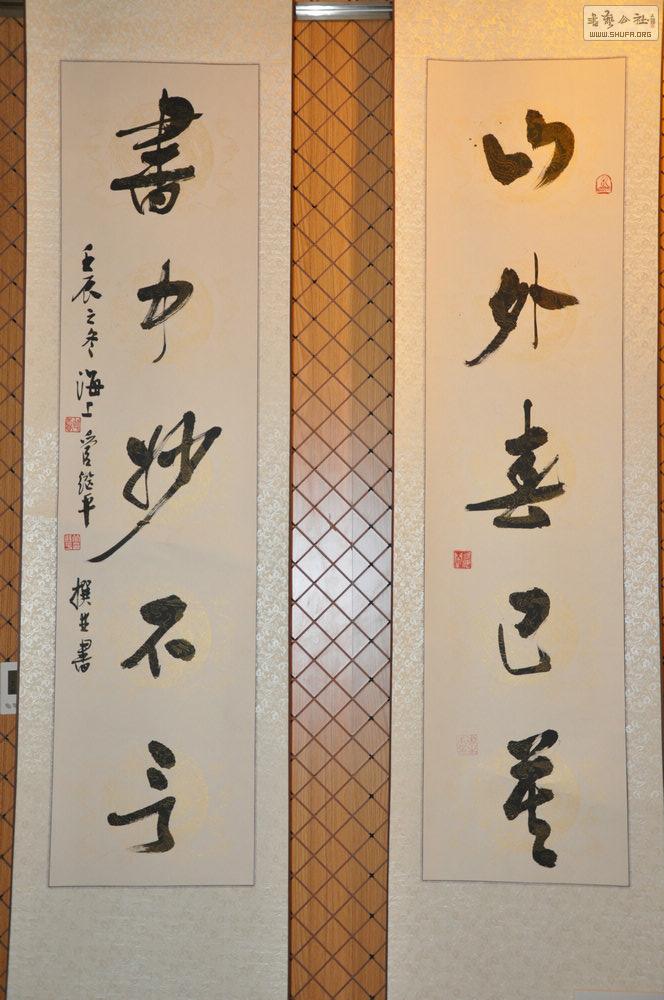 書藝公社
WWW.SHUFA.ORG
山外喜已莫
書中妙不言
壬辰之冬海上管继平撰并書